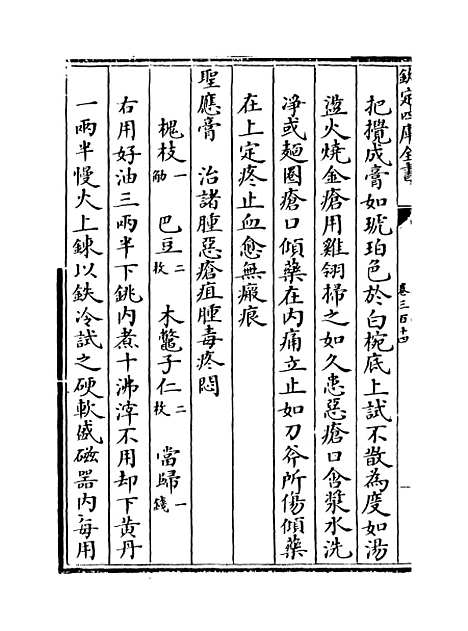 欽定四庫全書
卷三百十四
把攪成膏如琥珀色於白椀底上試不散為度如湯
盪火燒金瘡用雞翎掃之如久患惡瘡口含漿水洗
淨或麺圏瘡口傾藥在內痛立止如刀斧所傷傾藥
在上定疼止血愈無瘢痕
聖應膏　治諸腫惡瘡疽腫毒疼悶
槐枝一觔　巴豆二枚　木鼈子仁二枚　當歸一錢
右用好油三兩半下銚內煮十沸滓不用却下黄丹
一兩半慢火上鍊以鉄冷試之硬軟盛磁器內每用